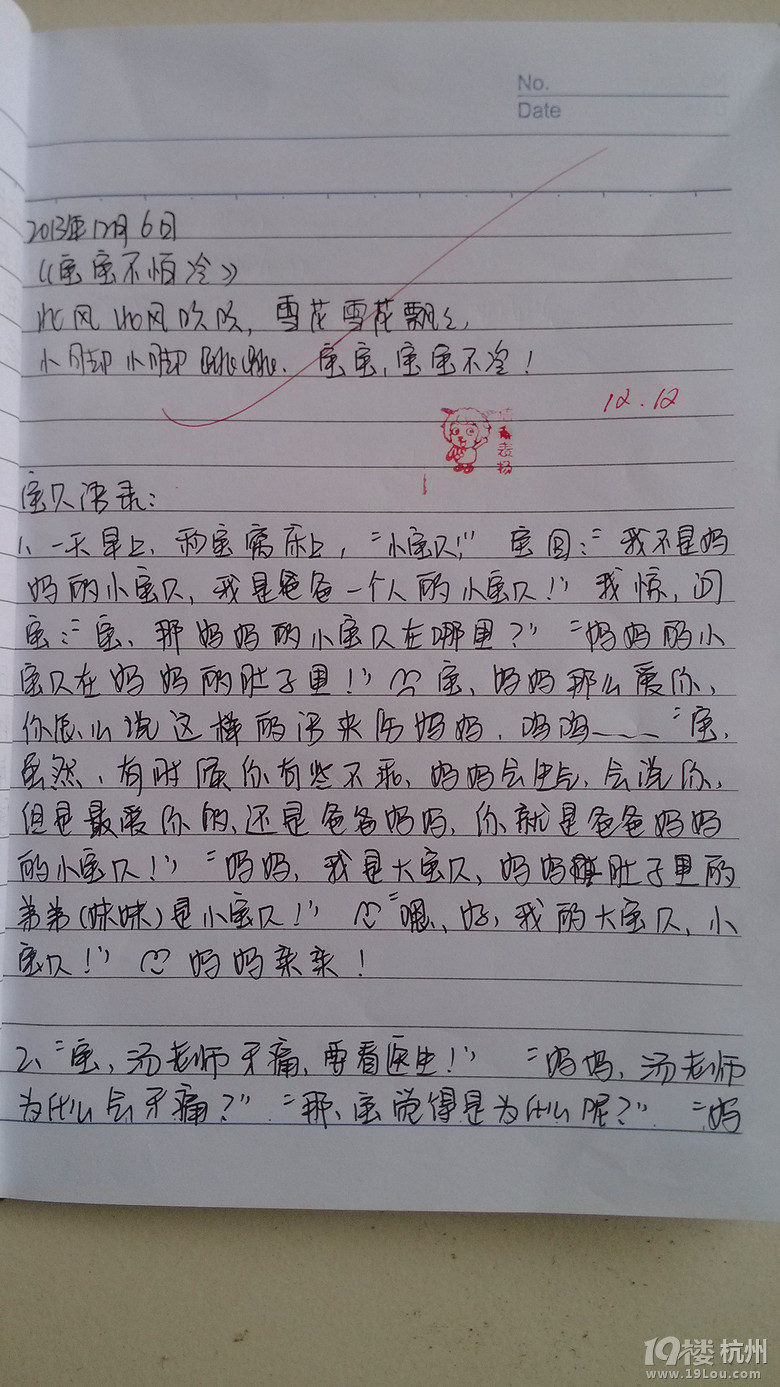 No.
Date
2013年12月6日
《宝宝不怕冷》
北风北风吹吹，雪花雪花飘飘，
小脚小脚跳跳．宝宝，宝宝不冷！
12.12
表扬
宝贝语录：
1、一天早上，和宝窝床上，“小宝贝！” 宝回：“我不是妈
妈的小宝贝，我是爸爸一个人的小宝贝！” 我惊，问
宝：“宝，那妈妈的小宝贝在哪里？” “妈妈的小
宝贝在妈妈的肚子里！” 宝，妈妈那么爱你，
你怎么说这样的话来伤妈妈，呜呜～～～“宝，
虽然，有时候你有些不乖，妈妈会生气，会说你，
但是最爱你的，还是爸爸妈妈，你就是爸爸妈妈
的小宝贝！” “妈妈，我是大宝贝，妈妈肚子里的
弟弟（妹妹）是小宝贝！” “嗯，好，我的大宝贝，小
宝贝！” 妈妈亲亲！
2、“宝，汤老师牙痛，要看医生！” “妈妈，汤老师
为什么会牙痛？” “那，宝觉得是为什么呢？” “妈
19楼 杭州
www.19Lou.com